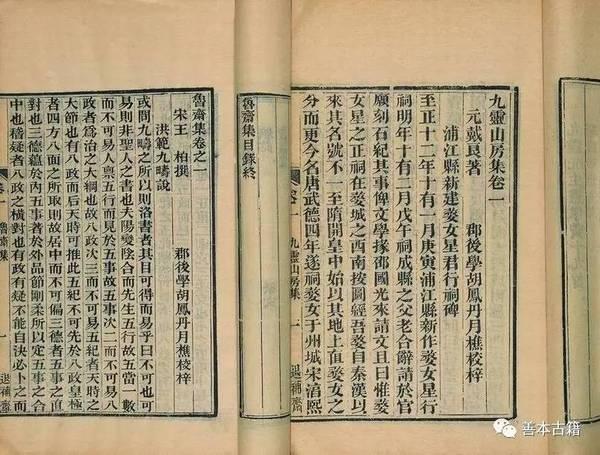 九靈山房集卷一
元戴良著 郡後學胡鳳丹月樵校梓
浦江縣新建婺女星君行祠碑
至正十二年十有一月庚寅浦江縣新作婺女星行
祠明年十有二月戊午祠成縣之父老合辭請於官
願刻石紀其事俾文學掾邵國光來請文且曰惟婺
女星之正祠在婺城之西南按圖經吾婺自秦漢以
來其名號不一至隋開皇中始以其地上直婺女之
分而更今名唐武德四年遂祠婺女于州城宋淳熙
九靈山房集 一
魯齋集目錄終
魯齋集卷之一
宋王 柏撰 郡後學胡鳳丹月樵校梓
洪範九疇說
或問九疇之所以則洛書者其目可得而易乎曰不可也可
易則非聖人之書也夫陽變陰合而先生五行故五當一數
而不可易人稟五行而見於五事故五事次二而不可易八
政者為治之大綱也故八政次三而不可易五紀者天時之
大節也有八政而后天時可推此五紀不可先於八政皇極
者四方八面之所取則故居中而不可偏三德者五事之直
對也三德蘊於內五事著於外品節剛柔所以定五事之合
中也稽疑者八政之橫對也有政有疑不能自決必卜之而
卷一 魯齋集 一 退補齋
善本古籍